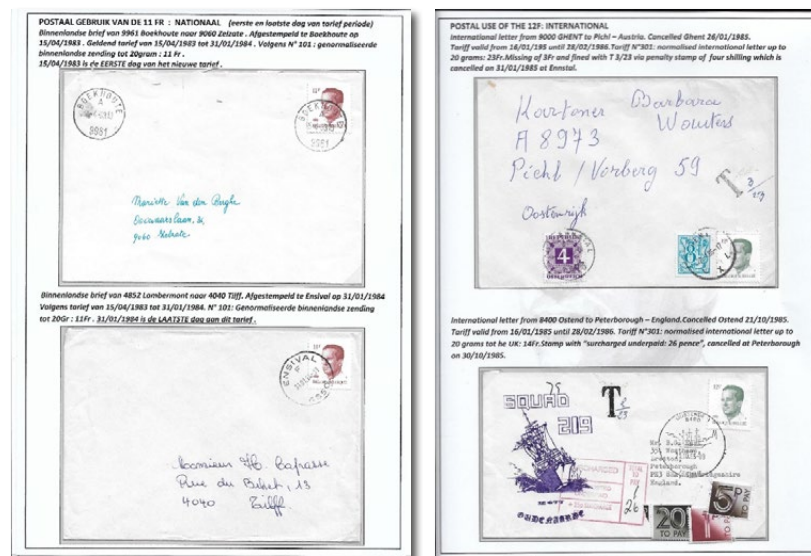 POSTAAL GEBRUIK VAN DE 11 FR : NATIONAAL (eerste en laatste dag van tarief periode)
Binnenlandse brief van 9961 Boekhoute naar 9060 Zelzate. Afgestempeld te Boekhoute op
15/04/1983. Geldend tarief van 15/04/1983 tot 31/01/1984. Volgens N° 101 : genormaliseerde
binnenlandse zending tot 20gram : 11 Fr.
15/04/1983 is de EERSTE dag van het nieuwe tarief.
BOEKHOUTE
A
9961
BOEKHOUTE
A
9961
Mariette Van den Berghe
9060 Zelzate
Binnenlandse brief van 4852 Lombermont naar 4040 Tilff. Afgestempeld te Ensival op 31/01/1984
Volgens tarief van 15/04/1983 tot 31/01/1984. N° 101: Genormaliseerde binnenlandse zending
tot 20Gr : 11Fr. 31/01/1984 is de LAATSTE dag aan dit tarief.
ENSIVAL
Monsieur
Rue du Bihet, 13
4040 Tilff
POSTAL USE OF THE 12F: INTERNATIONAL
International letter from 9000 GHENT to Pichl – Austria. Cancelled Ghent 26/01/1985.
Tariff valid from 16/01/195 until 28/02/1986. Tariff N°301: normalised international letter up to
20 grams: 23Fr. Missing of 3Fr and fined with T 3/23 via penalty stamp of four shilling which is
cancelled on 31/01/1985 at Ennstal.
Kartoner Barbara
Wouters
A 8973
Pichl / Vorberg 59
T 3/23
Oostenrijk
4
8
International letter from 8400 Ostend to Peterborough – England. Cancelled Ostend 21/10/1985.
Tariff valid from 16/01/1985 until 28/02/1986. Tariff N°301: normalised international letter up to
20 grams tot he UK: 14Fr. Stamp with "surcharged underpaid: 26 pence", cancelled at Peterborough
on 30/10/1985.
SQUAD
219
T
Peterborough
England.
SURCHARGED
TO
PAY
26
OUDENAARDE
20
TO PAY
1
TO PAY
5
TO PAY